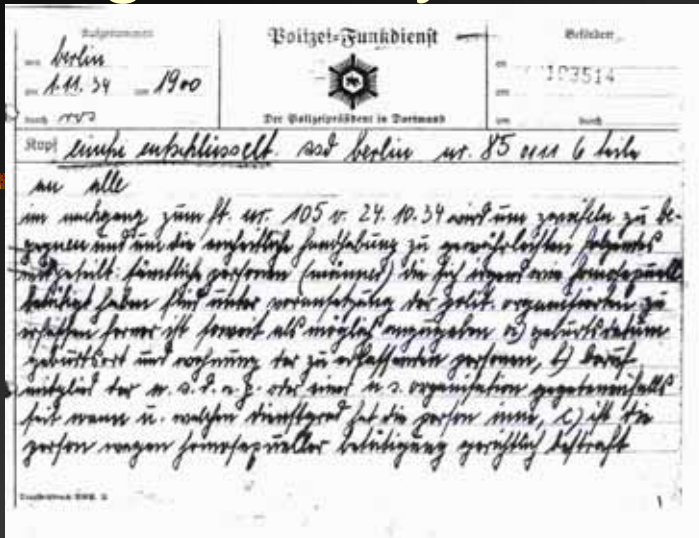 Aufgenommen
Polizei=Funkdienst
Befördert
von berlin
an
am 1.11.34 um 1900
103514
um
durch rvs
Der Polizeipräsident in Dortmund
um durch
Kopf entschlüsselt. ssd berlin nr. 85 0111 6 teile
an alle
im nachgang zum fs. nr. 105 v. 24.10.34 wird um zweifeln zu be-
gegnen und um die einheitliche handhabung zu gewährleisten folgendes
mitgeteilt: sämtliche personen (männer) die sich irgend wie homosexuell
betätigt haben sind unter voransetzung der polit. organisierten zu
erfassen ferner ist soweit als möglich anzugeben a) geburtsdatum
geburtsort und wohnung der zu erfassenden personen, b) beruf
mitglied der n. s. d. a. p. oder einer n. s. organisation gegebenenfalls
seit wann u. welchen dienstgrad hat die person inne, c) ist die
person wegen homosexueller betätigung gerichtlich bestraft
1